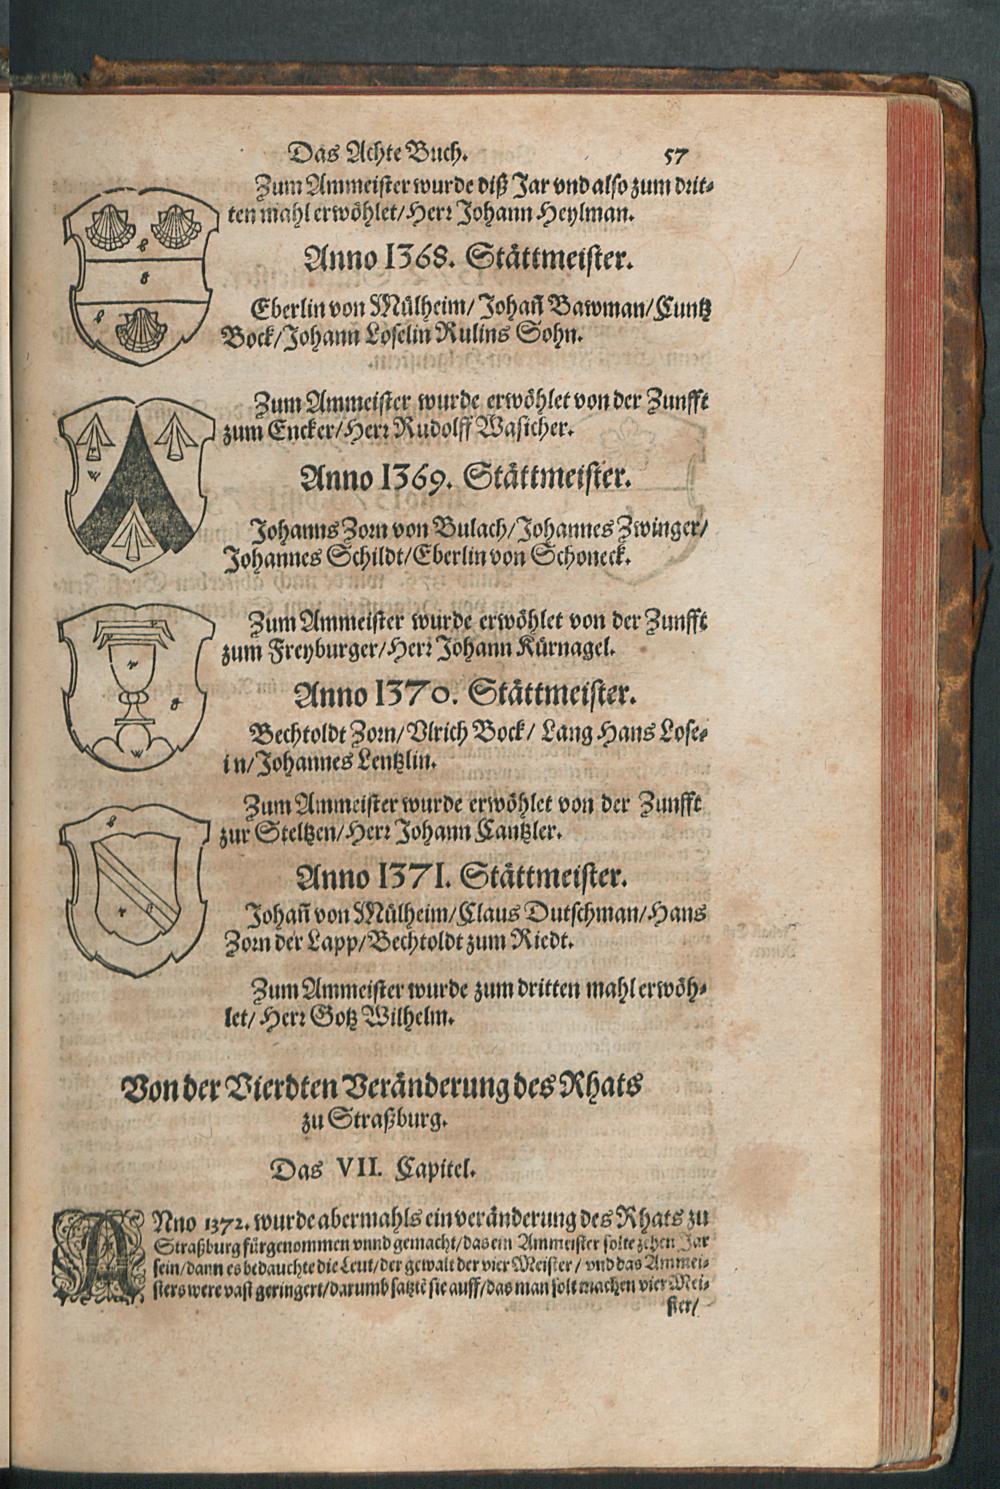 Das Achte Buch. 57
Zum Ammeister wurde diß Jar vnd also zum drit-
ten mahl erwöhlet/Herr Johann Heylman.
Anno 1368. Stättmeister.
Eberlin von Mülheim/ Johañ Bawman/Cuntz
Bock/Johann Loselin Rulins Sohn.
Zum Ammeister wurde erwöhlet von der Zunfft
zum Encker/Herr Rudolff Wasicher.
Anno 1369. Stättmeister.
Johanns Zorn von Bulach/Johannes Zwinger/
Johannes Schildt/Eberlin von Schoneck.
Zum Ammeister wurde erwöhlet von der Zunfft
zum Freyburger/Herr Johann Kürnagel.
Anno 1370. Stättmeister.
Bechtoldt Zorn/Vlrich Bock/ Lang Hans Lose-
i n/Johannes Lentzlin.
Zum Ammeister wurde erwöhlet von der Zunfft
zur Steltzen/Herr Johann Cantzler.
Anno 1371. Stättmeister.
Johañ von Mülheim/Claus Dutschman/Hans
Zorn der Lapp/Bechtoldt zum Riedt.
Zum Ammeister wurde zum dritten mahl erwöh-
let/ Herr Gotz Wilhelm.
Von der Vierdten Veränderung des Rhats
zu Straßburg.
Das VII. Capitel.
ANno 1372. wurde abermahls ein veränderung des Rhats zu
Straßburg fürgenommen vnnd gemacht/das ein Ammeister solte zehen Jar
sein/dann es bedauchte die Leut/der gewalt der vier Meister / vnd das Ammei-
sters were vast geringert/darumb satztẽ sie auff/das man solt machen vier Mei-
ster/